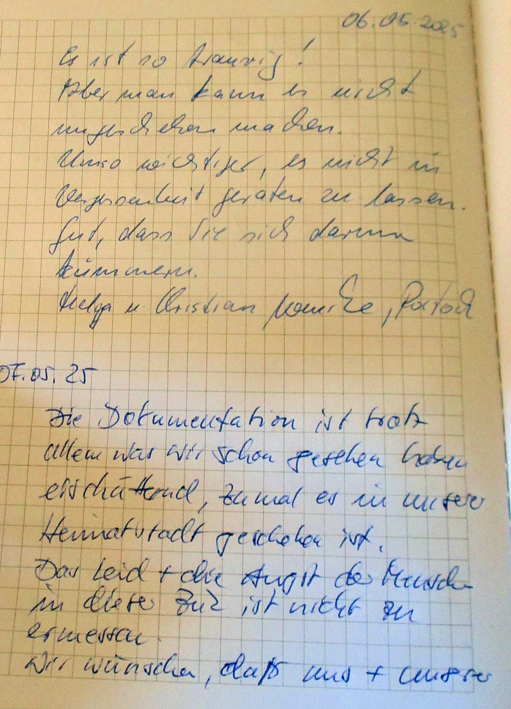 06.05.2025
Es ist so traurig!
Aber man kann es nicht
ungeschehen machen.
Umso wichtiger, es nicht in
Vergessenheit geraten zu lassen.
Gut, dass Sie sich darum
kümmern.
Helga u Christian
07.05.25
Die Dokumentation ist trotz
allem was wir schon gesehen haben
erschütternd, zumal es in unserer
Heimatstadt geschehen ist.
Das Leid + die Angst der Menschen
in dieser Zeit ist nicht zu
ermessen.
Wir wünschen, daß uns + unserer